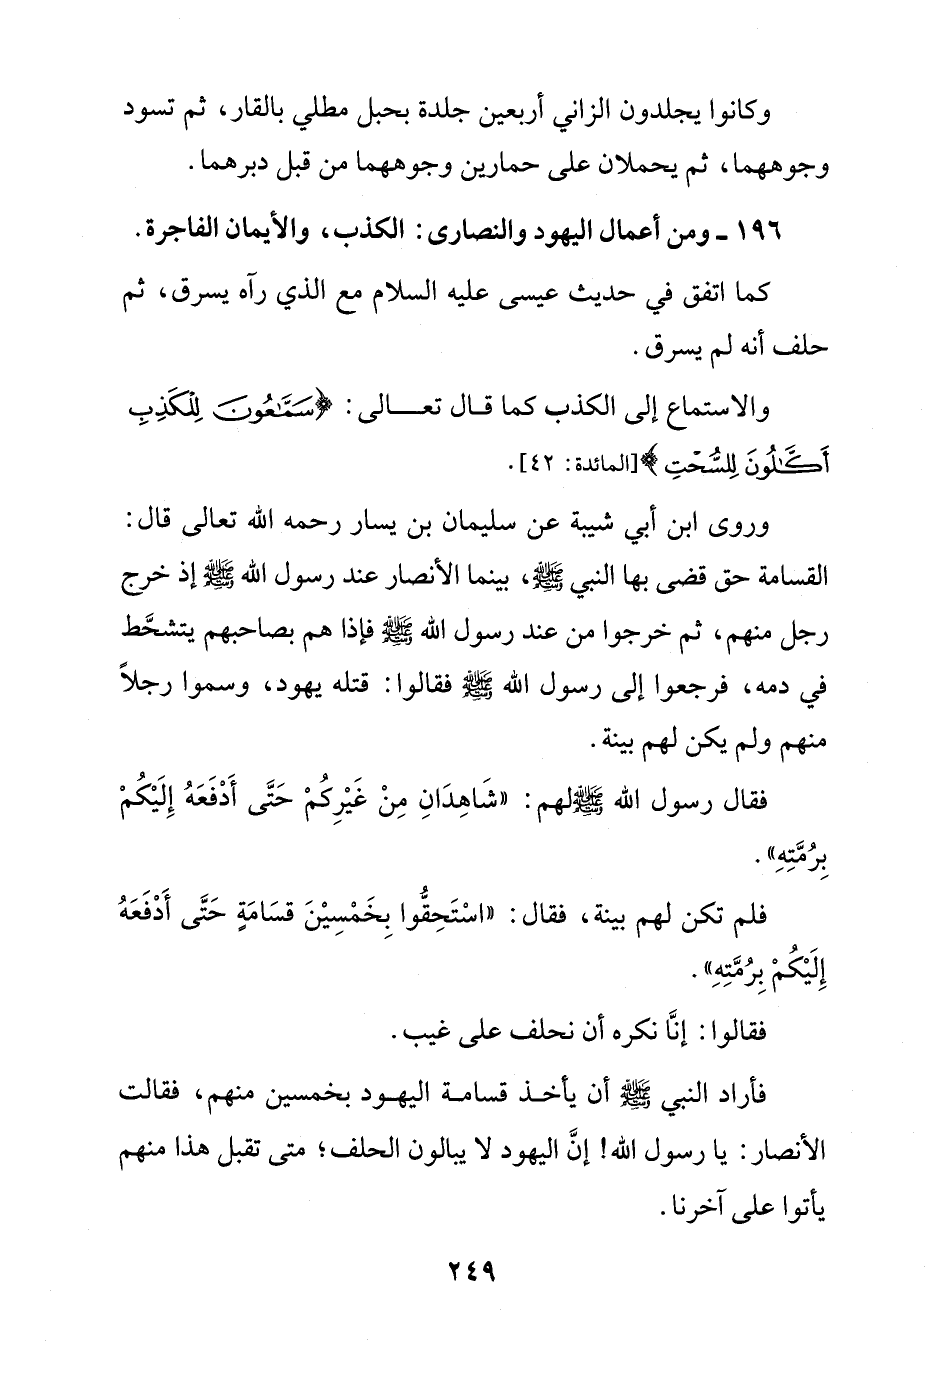 وكانوا يجلدون الزاني أربعين جلدة بحبل مطلي بالقار، ثم تسود
وجوههما، ثم يحملان على حمارين وجوههما من قبل دبرهما.
١٩٦ ـ ومن أعمال اليهود والنصارى: الكذب، والأيمان الفاجرة.
كما اتفق في حديث عيسى عليه السلام مع الذي رآه يسرق، ثم
حلف أنه لم يسرق.
والاستماع إلى الكذب كما قال تعالى: ﴿سَمَّٰعُونَ لِلْكَذِبِ
أَكَّٰلُونَ لِلسُّحْتِ﴾ [المائدة: ٤٢].
وروى ابن أبي شيبة عن سليمان بن يسار رحمه الله تعالى قال:
القسامة حق قضى بها النبي ﷺ، بينما الأنصار عند رسول الله ﷺ إذ خرج
رجل منهم، ثم خرجوا من عند رسول الله ﷺ فإذا هم بصاحبهم يتشحَّط
في دمه، فرجعوا إلى رسول الله ﷺ فقالوا: قتله يهود، وسموا رجلاً
منهم ولم يكن لهم بينة.
فقال رسول الله ﷺ لهم: «شَاهِدَانِ مِنْ غَيْرِكُمْ حَتَّى أَدْفَعَهُ إِلَيْكُمْ
بِرُمَّتِهِ».
فلم تكن لهم بينة، فقال: «اسْتَحِقُّوا بِخَمْسِيْنَ قسَامَةٍ حَتَّى أَدْفَعَهُ
إِلَيْكُمْ بِرُمَّتِهِ».
فقالوا: إنَّا نكره أن نحلف على غيب.
فأراد النبي ﷺ أن يأخذ قسامة اليهود بخمسين منهم، فقالت
الأنصار: يا رسول الله! إنَّ اليهود لا يبالون الحلف؛ متى تقبل هذا منهم
يأتوا على آخرنا.
٢٤٩